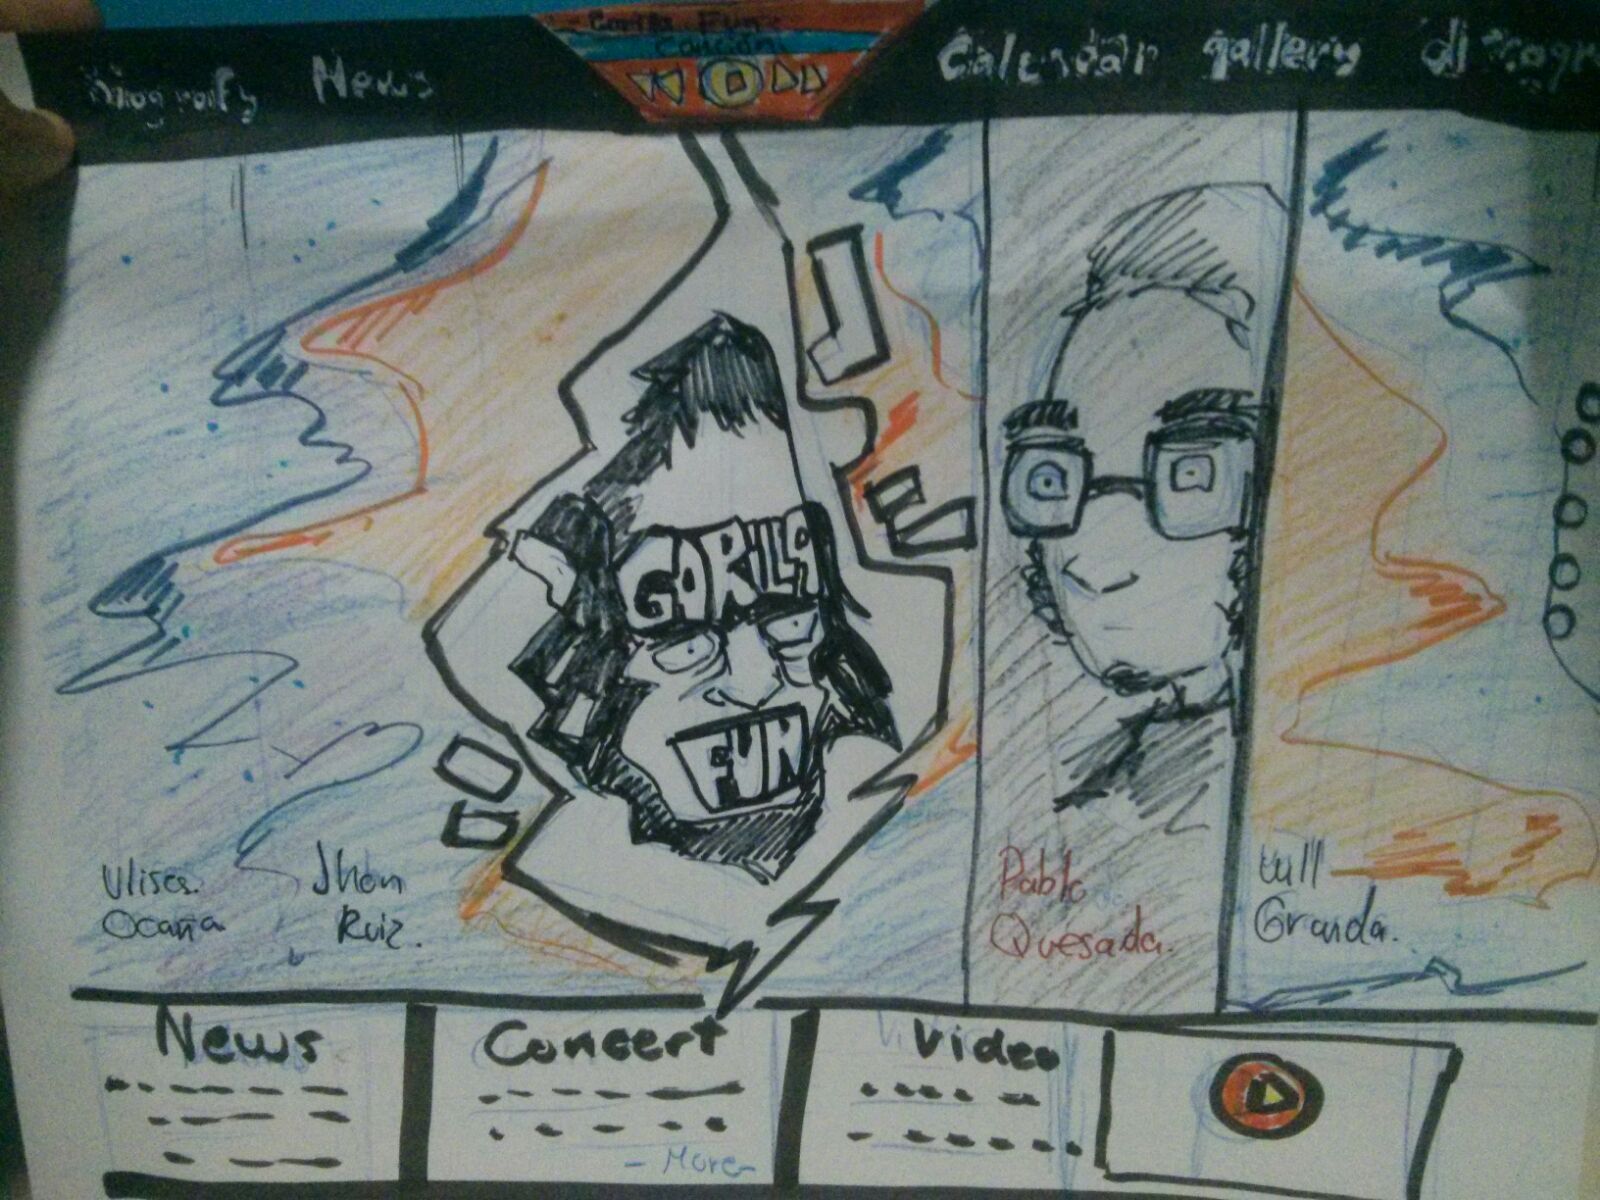 Biografy News
Gorilla Fun
Cancion 1
Calendar gallery discogr
GORILLA
FUN
Ulises
Ocaña
Jhon
Ruiz.
Pablo
Quesada.
Granda.
News
Concert
Video
- More-